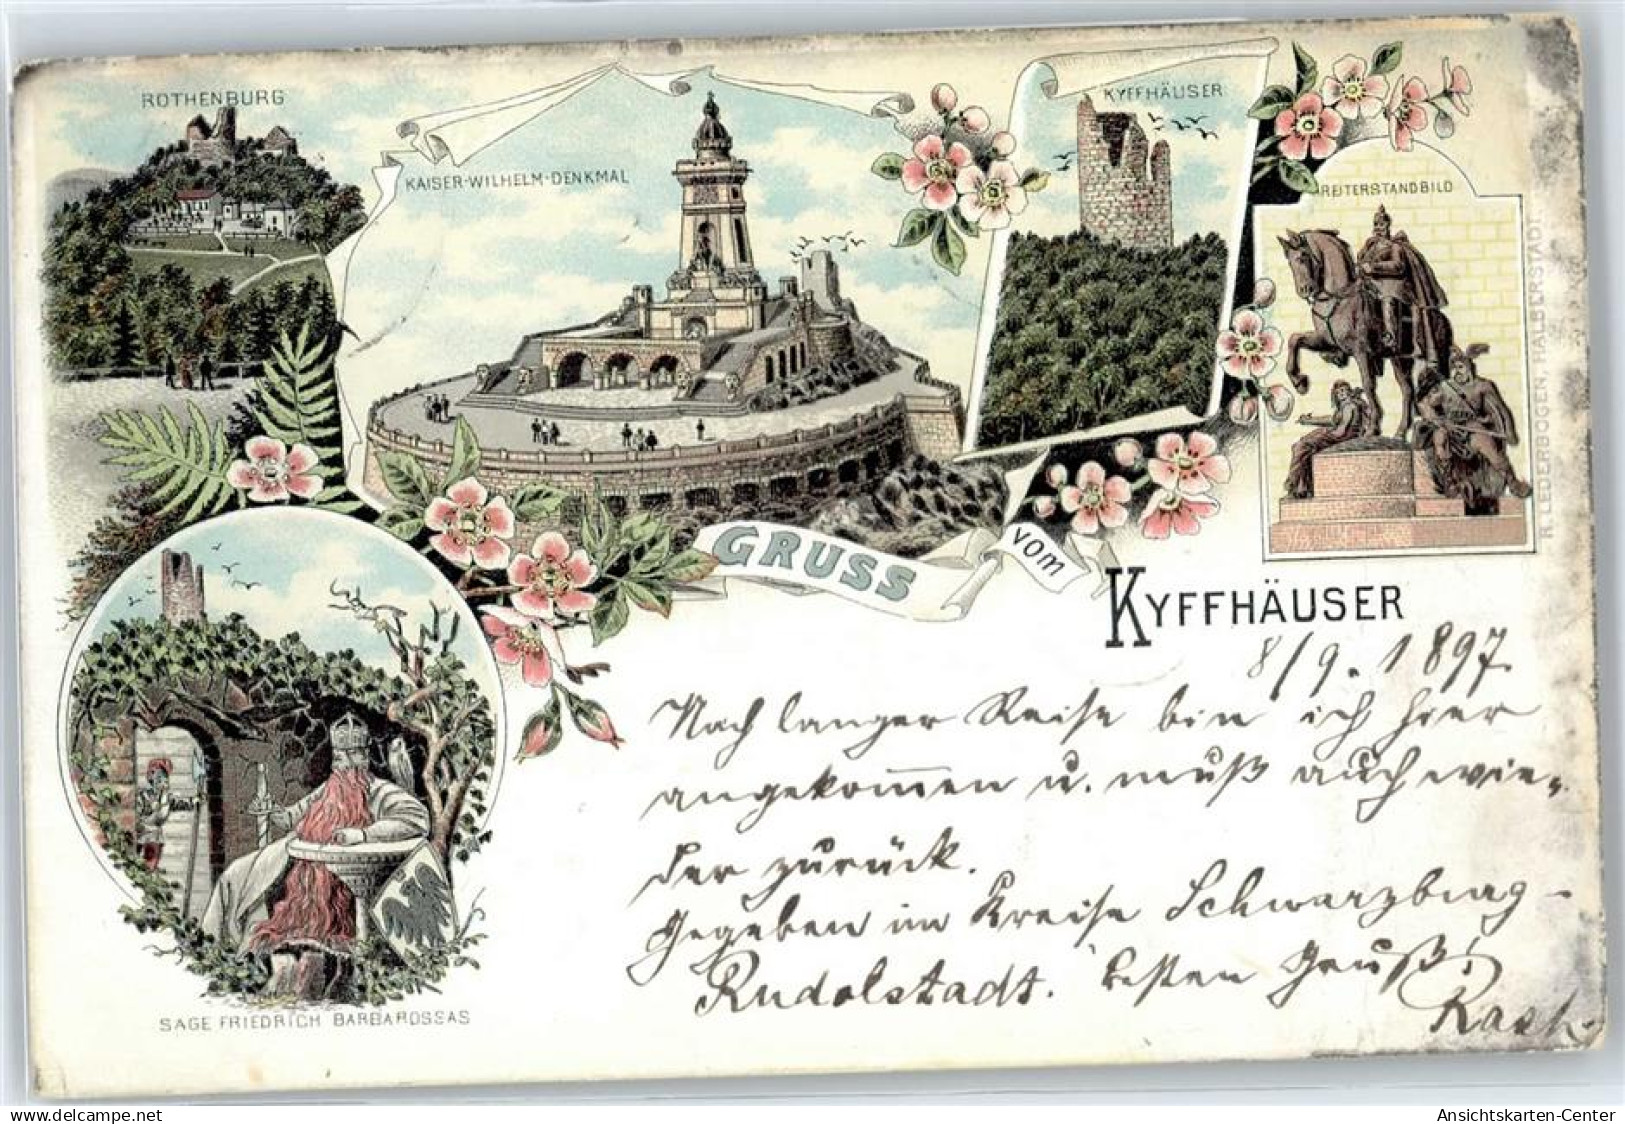 ROTHENBURG
KAISER-WILHELM-DENKMAL
KYFFHÄUSER
REITERSTANDBILD
R. LEDERBOGEN, HALBERSTADT.
GRUSS
VOM
KYFFHÄUSER
8/9. 1897.
Nach langer Reise bin ich hier
angekommen u. muß auch wie-
der zurück.
Gegeben im Kreise Schwarzburg-
Rudolstadt. besten Gruß!
SAGE FRIEDRICH BARBAROSSAS
www.delcampe.net
Ansichtskarten-Center